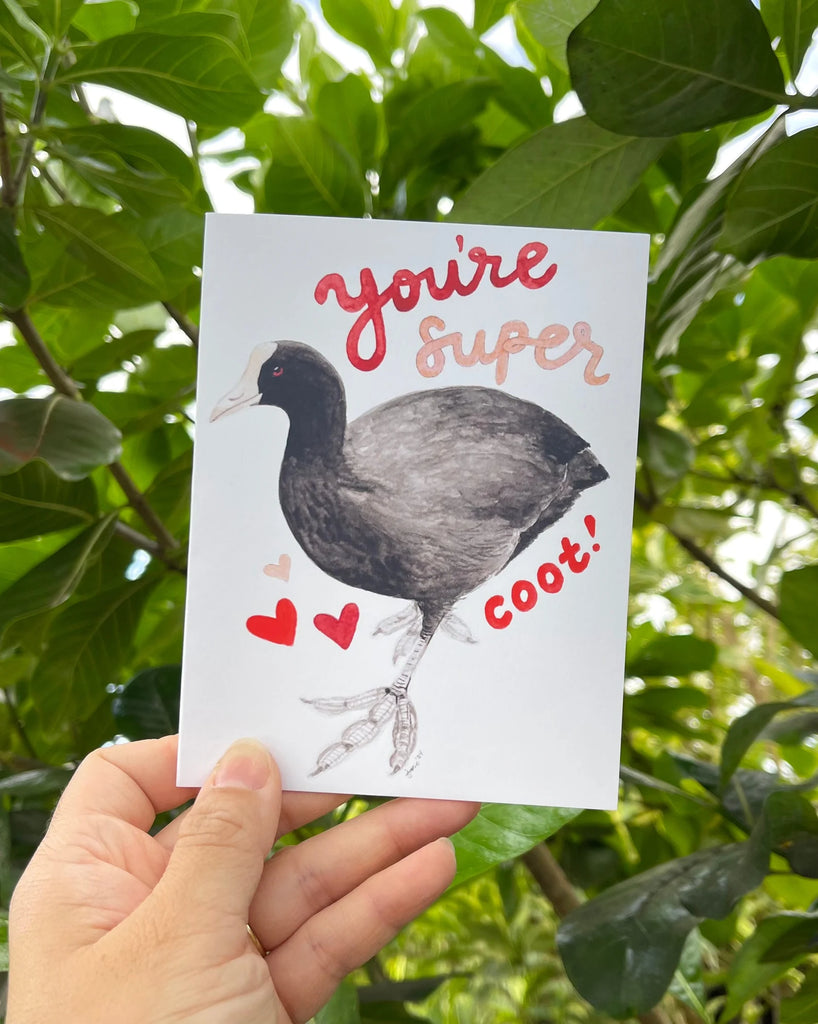 you're
super
coot!